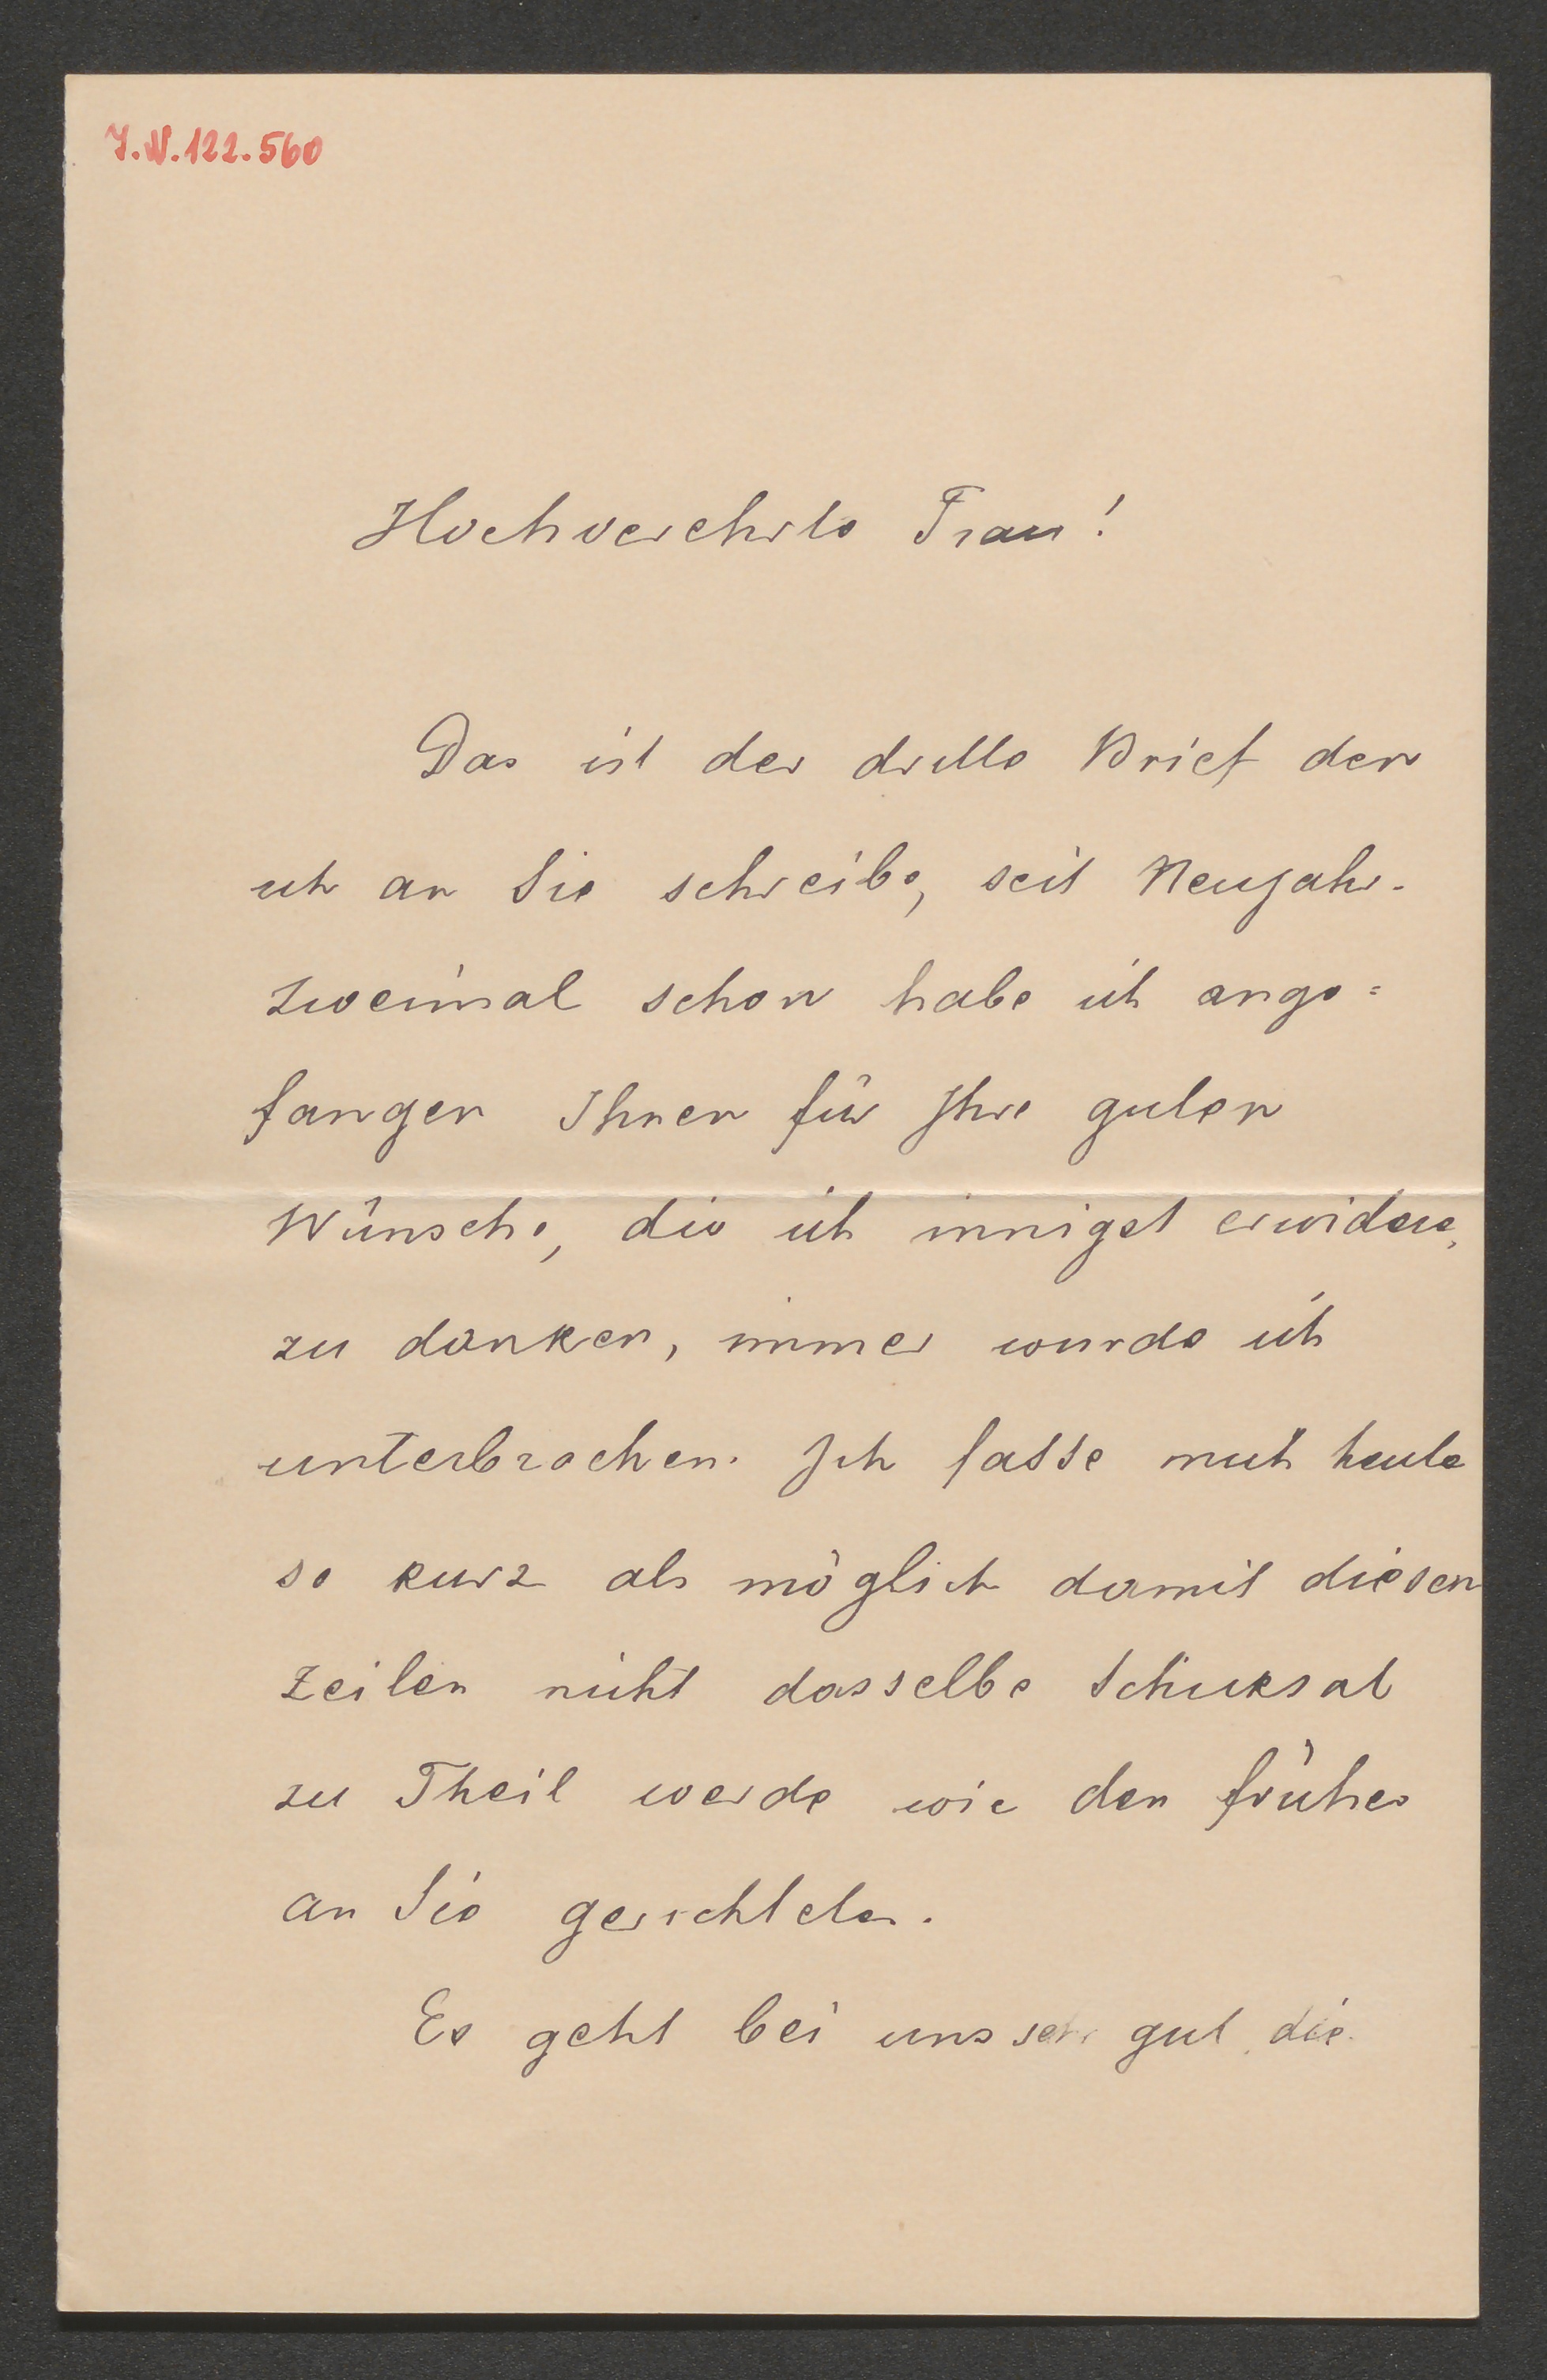 I.N.122.560
Hochverehrte Frau!
Das ist der dritte Brief den
ich an Sie schreibe, seit Neujahr.
zweimal schon habe ich ange=
fangen Ihnen für Ihre guten
Wünsche, die ich innigst erwidere,
zu danken, immer wurde ich
unterbrochen. Ich fasse mich heute
so kurz als möglich damit diesen
Zeilen nicht dasselbe Schicksal
zu Theil werde wie den früher
an Sie gerichteten.
Es geht bei uns sehr gut, die